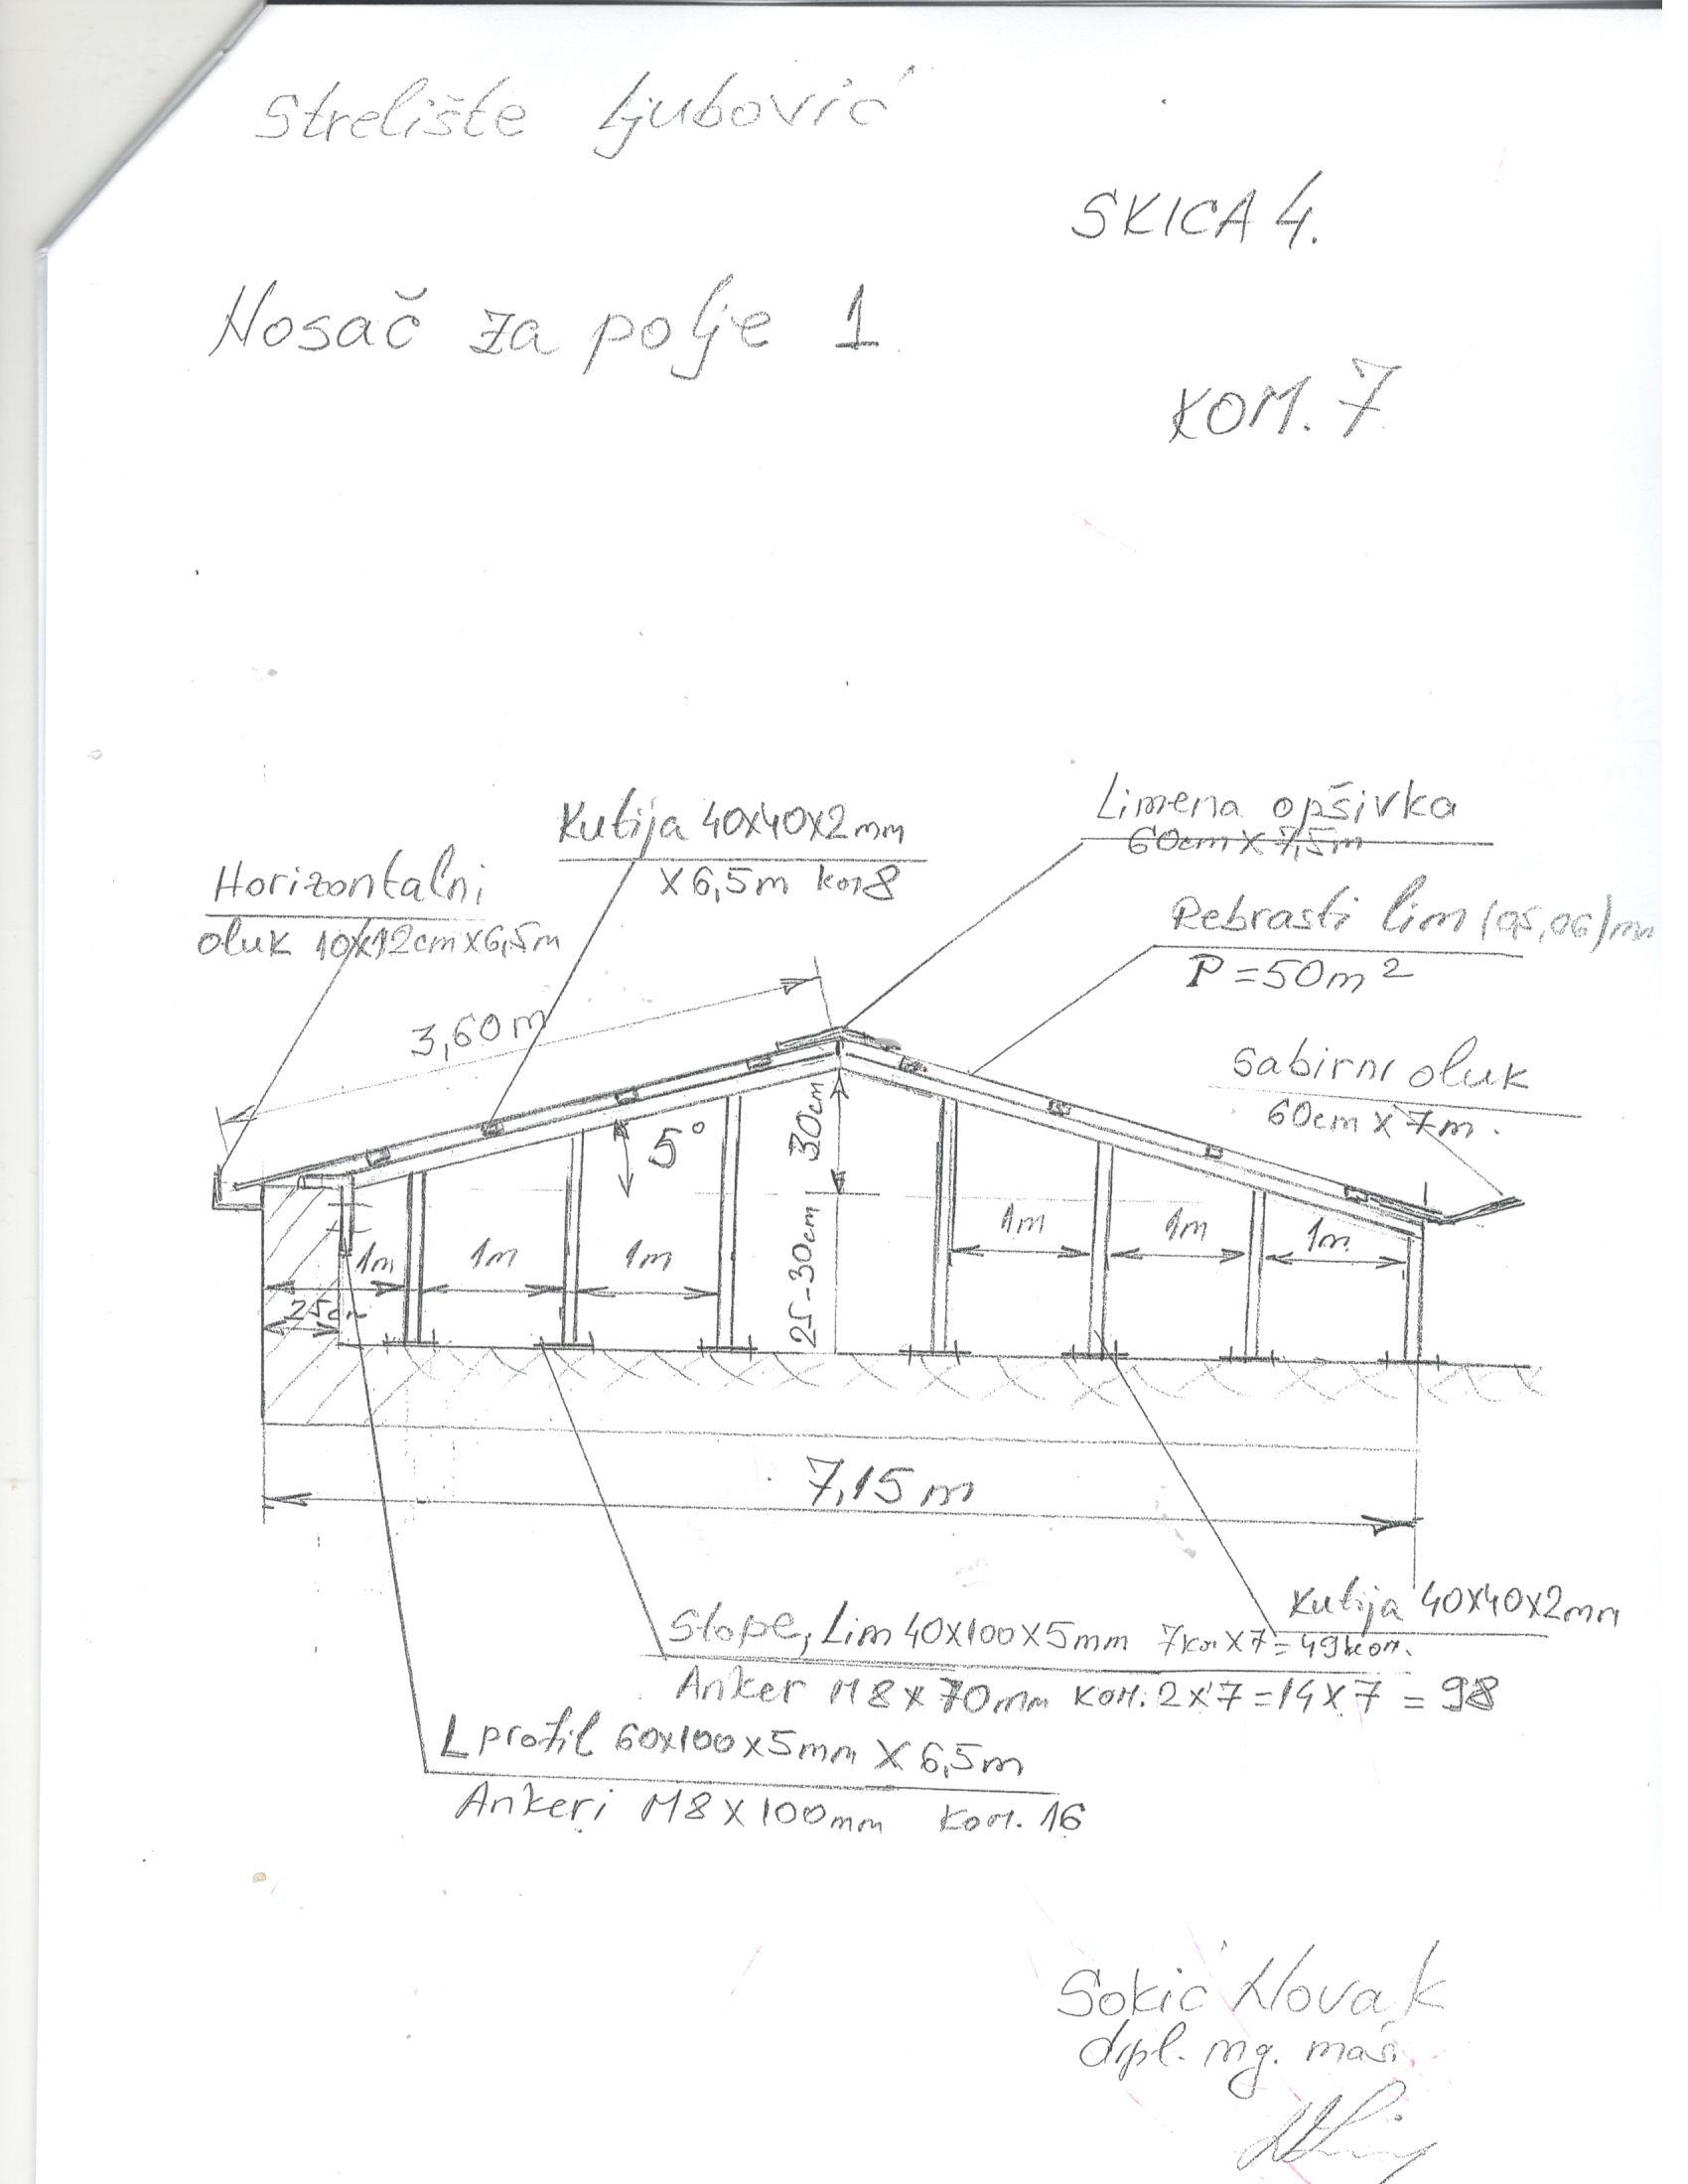 Strelište Ljubović
SKICA 4.
Nosač za polje 1
KOM. 7
Kutija 40x40x2mm
x 6,5m kom 8
Limena opšivka
60cm x 7,5m
Horizontalni
oluk 10x12cm x 6,5m
Rebrasti lim (0,5,06)mm
P = 50m²
3,60m
Sabirni oluk
60cm x 7m.
5°
30cm
25-30cm
1m
1m
1m
1m
1m
1m
25cm
7,15m
Kutija 40x40x2mm
Stope, Lim 40x100x5mm 7kom x 7 = 49kom.
Anker M8 x 70mm kom. 2x7 = 14x7 = 98
L profil 60x100x5mm x 6,5m
Ankeri M8 x 100mm kom. 16
Sokić Novak
dipl. ing. maš.